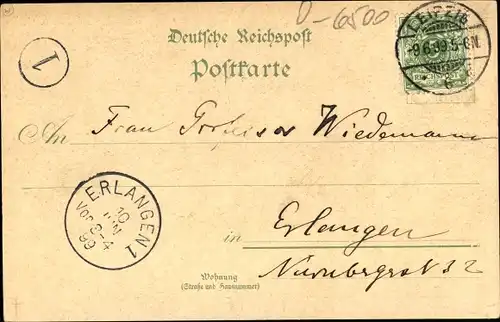 D-6500
LEIPZIG
-9.6.99.5-6N.
Deutsche Reichspost
Postkarte
1
An Frau Professor Wiedemann
ERLANGEN 1
10
JUN
Vor 3-4
99
in Erlangen
Nürnbergerst 32
Wohnung
(Straße und Hausnummer)